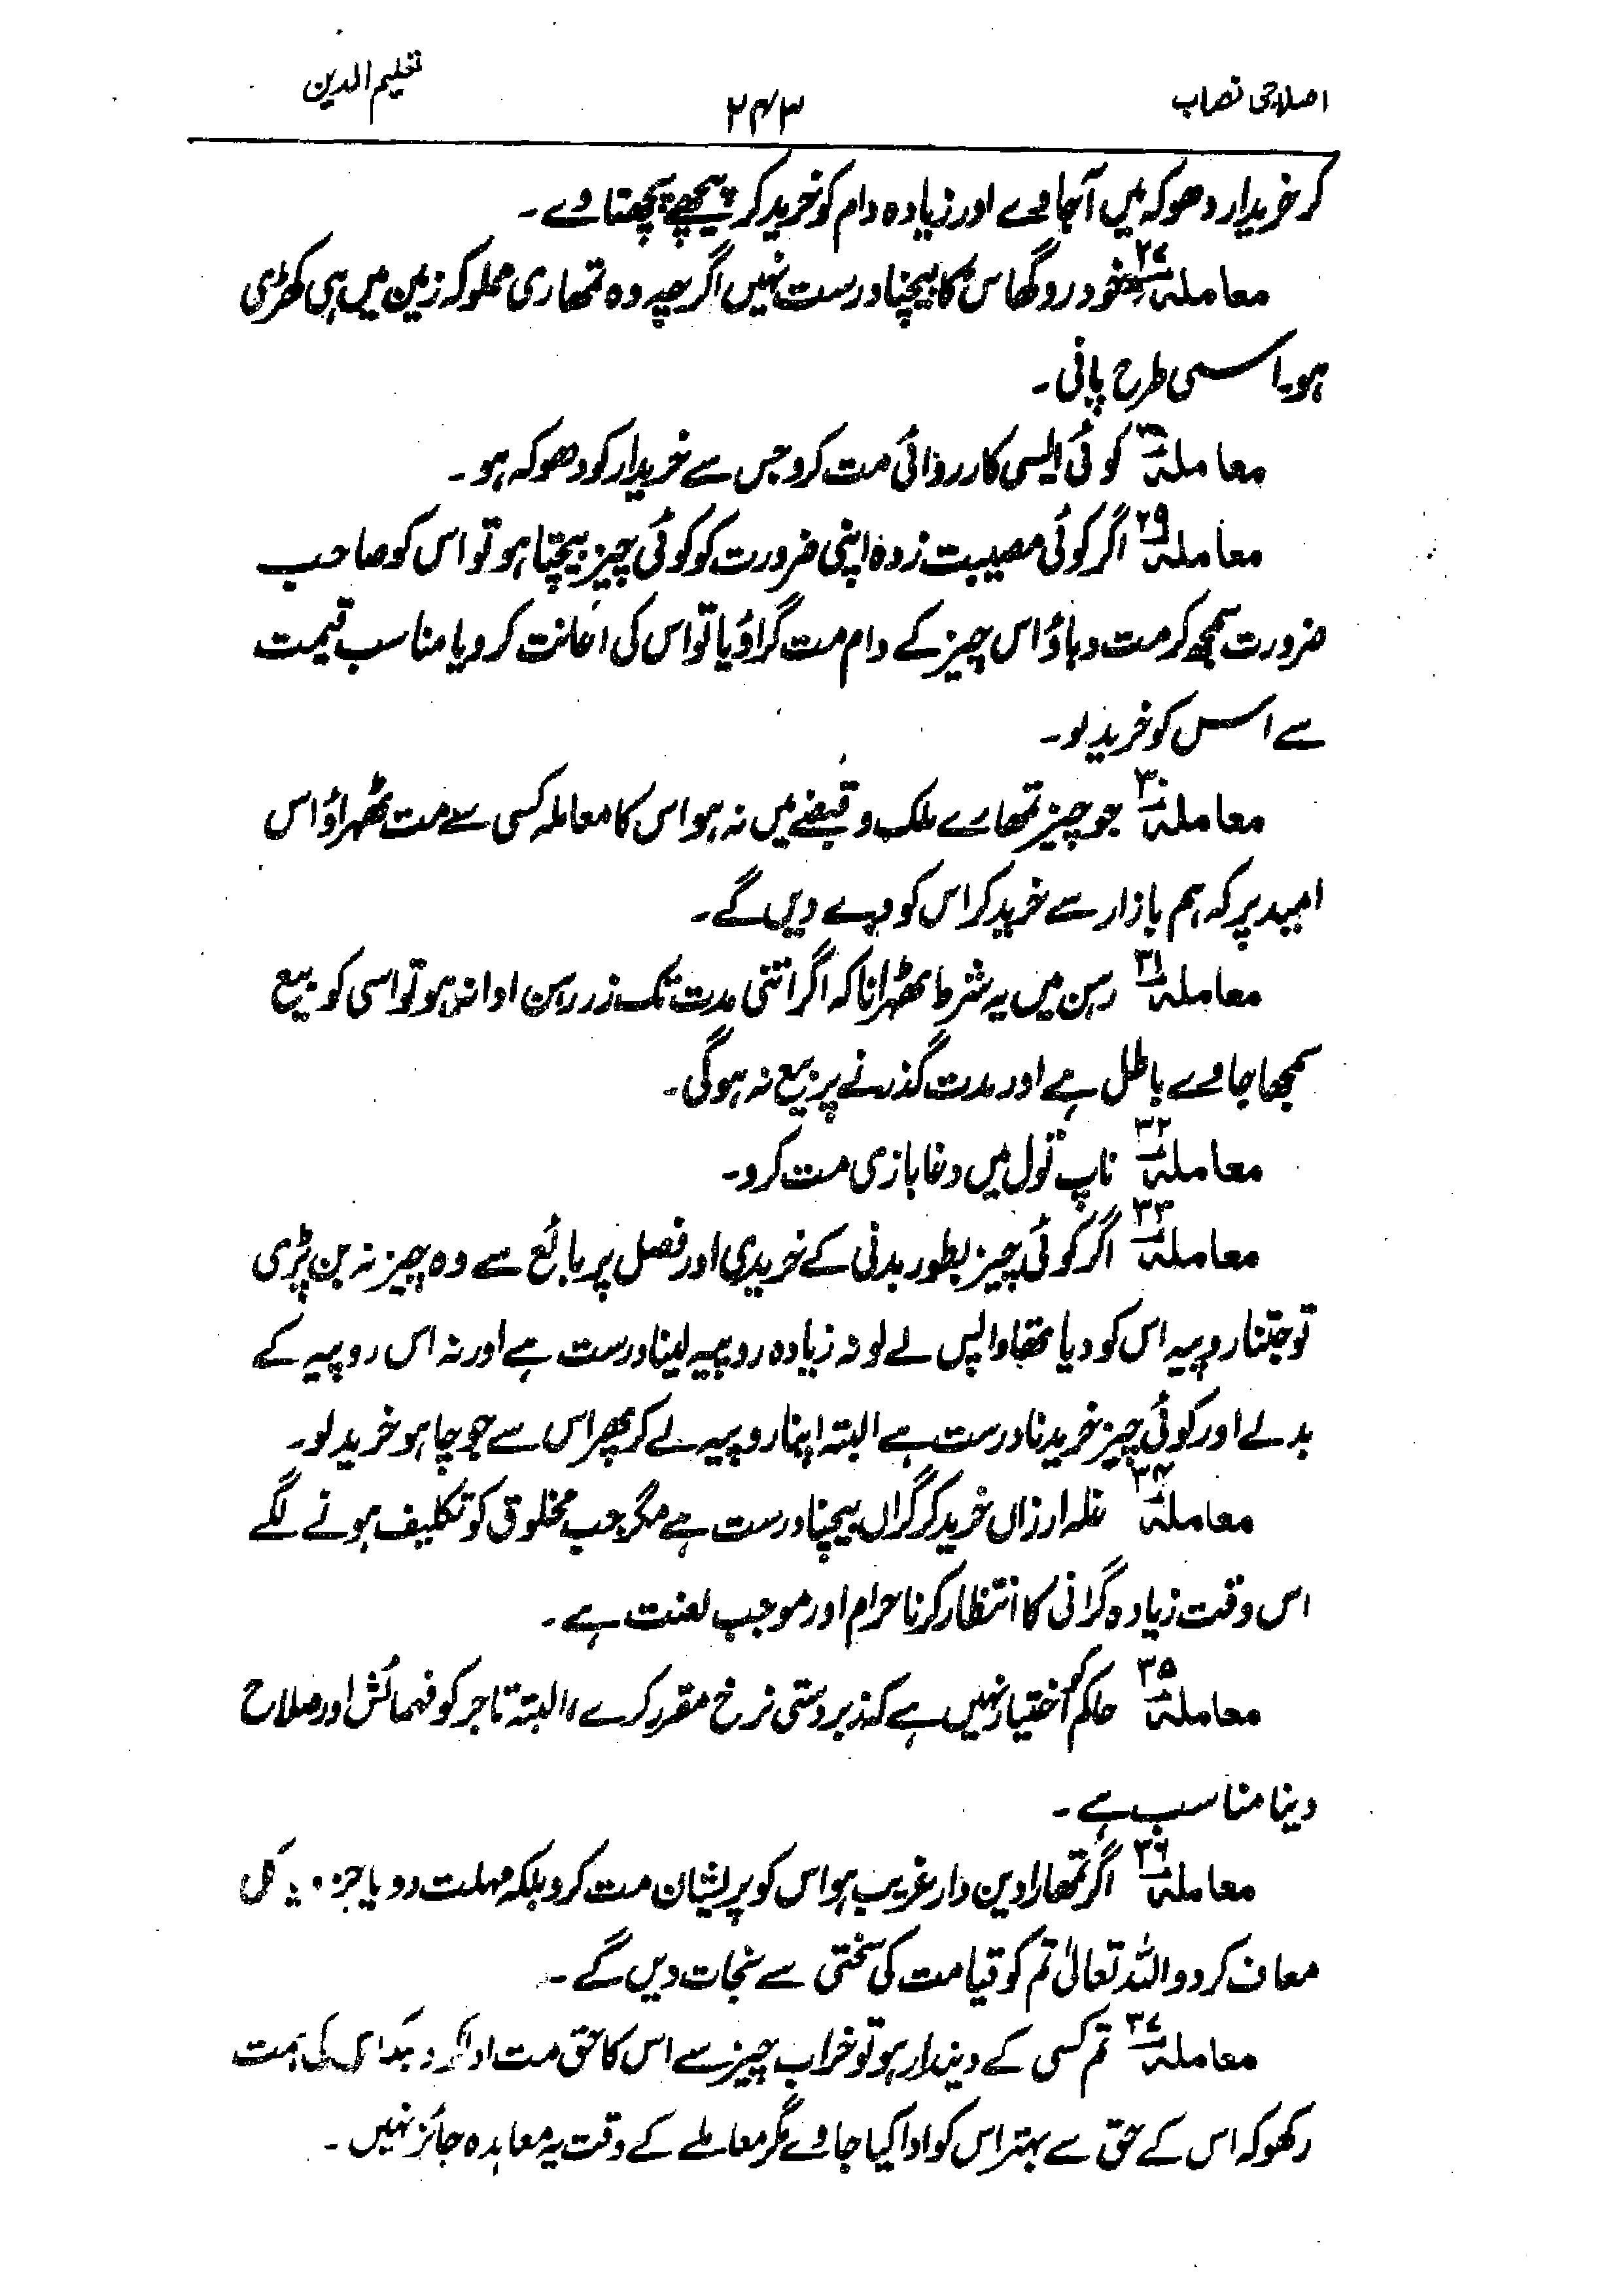 اصلاحی نصاب
۲۴۳
تعلیم الدین
کر خریدار دھوکہ میں آجاوے اور زیادہ دام کو خرید کر پیچھے پچھتاوے۔
معاملہ ۲۷ خود رو گھاس کا بیچنا درست نہیں اگرچہ وہ تمھاری مملوکہ زمین میں ہی کھڑی
ہو۔ اسی طرح پانی۔
معاملہ ۲۸ کوئی ایسی کارروائی مت کرو جس سے خریدار کو دھوکہ ہو۔
معاملہ ۲۹ اگر کوئی مصیبت زدہ اپنی ضرورت کو کوئی چیز بیچتا ہو تو اس کو صاحب
ضرورت سمجھ کر مت دباؤ اس چیز کے دام مت گراؤ یا تو اس کی اعانت کرو یا مناسب قیمت
سے اس کو خرید لو۔
معاملہ ۳۰ جو چیز تمھارے ملک و قبضے میں نہ ہو اس کا معاملہ کسی سے مت ٹھہراؤ اس
امید پر کہ ہم بازار سے خرید کر اس کو دے دیں گے۔
معاملہ ۳۱ رہن میں یہ شرط ٹھہرانا کہ اگر اتنی مدت تک زر رہن ادا نہ ہو تو اسی کو بیع
سمجھا جاوے باطل ہے اور مدت گذرنے پر بیع نہ ہوگی۔
معاملہ ۳۲ ناپ تول میں دغا بازی مت کرو۔
معاملہ ۳۳ اگر کوئی چیز بطور بدنی کے خریدی اور فصل پر بائع سے وہ چیز نہ بن پڑی
تو جتنا روپیہ اس کو دیا تھا واپس لے لو نہ زیادہ روپیہ لینا درست ہے اور نہ اس روپیہ کے
بدلے اور کوئی چیز خریدنا درست ہے البتہ اپنا روپیہ لے کر پھر اس سے جو چاہو خرید لو۔
معاملہ ۳۴ غلہ ارزاں خرید کر گراں بیچنا درست ہے مگر جب مخلوق کو تکلیف ہونے لگے
اس وقت زیادہ گرانی کا انتظار کرنا حرام اور موجب لعنت ہے۔
معاملہ ۳۵ حاکم کو اختیار نہیں ہے کہ زبردستی نرخ مقرر کرے، البتہ تاجر کو فہمائش اور صلاح
دینا مناسب ہے۔
معاملہ ۳۶ اگر تمھارا دین دار غریب ہو اس کو پریشان مت کرو بلکہ مہلت دو یا جز کل
معاف کر دو اللہ تعالیٰ تم کو قیامت کی سختی سے نجات دیں گے۔
معاملہ ۳۷ تم کسی کے دیندار ہو تو خراب چیز سے اس کا حق مت ادا کرو ہمت
رکھو کہ اس کے حق سے بہتر اس کو ادا کیا جاوے مگر معاملے کے وقت یہ معاہدہ جائز نہیں۔